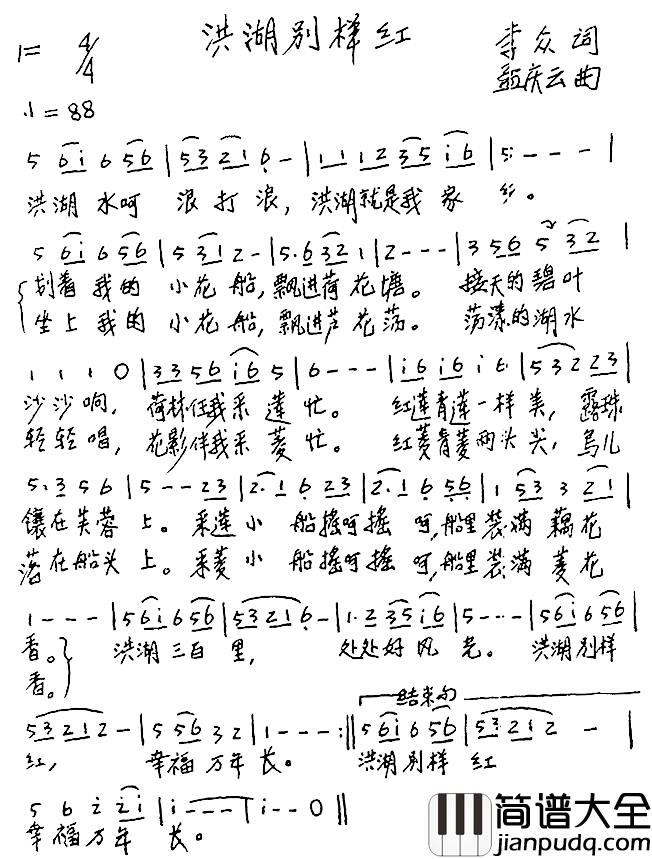 洪湖别样红
1= 4/4
李众词
庆云曲
♩=88
5 6i 6 56 | 53 21 6 - | 1 1 1 2 35 i6 | 5 - - - |
洪湖 水呵 浪打浪，洪湖就是我家乡。
5 6i 6 56 | 5 31 2 - | 5·6 32 1 | 2 - - - | 3 56 5 32 |
划着 我的 小花船，飘进荷花塘。 接天的碧叶
坐上 我的 小花船，飘进芦花荡。 荡漾的湖水
1 1 1 0 | 33 56 i6 5 | 6 - - - | i6 i6 i 6 | 5 32 23 |
沙沙响， 荷林任我采莲忙。 红莲青莲一样美，露珠
轻轻唱， 花影伴我采菱忙。 红菱青菱两头尖，鸟儿
5·3 5 6 | 5 - - 23 | 2·1 6 23 | 2·1 6 56 | 1 53 3 21 |
镶在芙蓉上。采莲小船摇呵摇呵，船里装满藕花
落在船头上。采菱小船摇呵摇呵，船里装满菱花
1 - - - | 56i 6 56 | 53 21 6 - | 1·2 35 i6 | 5 - - - | 56i 6 56 |
香。 洪湖三百里， 处处好风光。 洪湖别样
香。
结束句
53 21 2 - | 5 56 3 2 | 1 - - - :‖ 56i 6 56 | 53 21 2 - |
红， 幸福万年长。 洪湖别样红
5 6 2 2i | i - - - | i - - 0 ‖
幸福万年长。
简谱大全
jianpudq.com